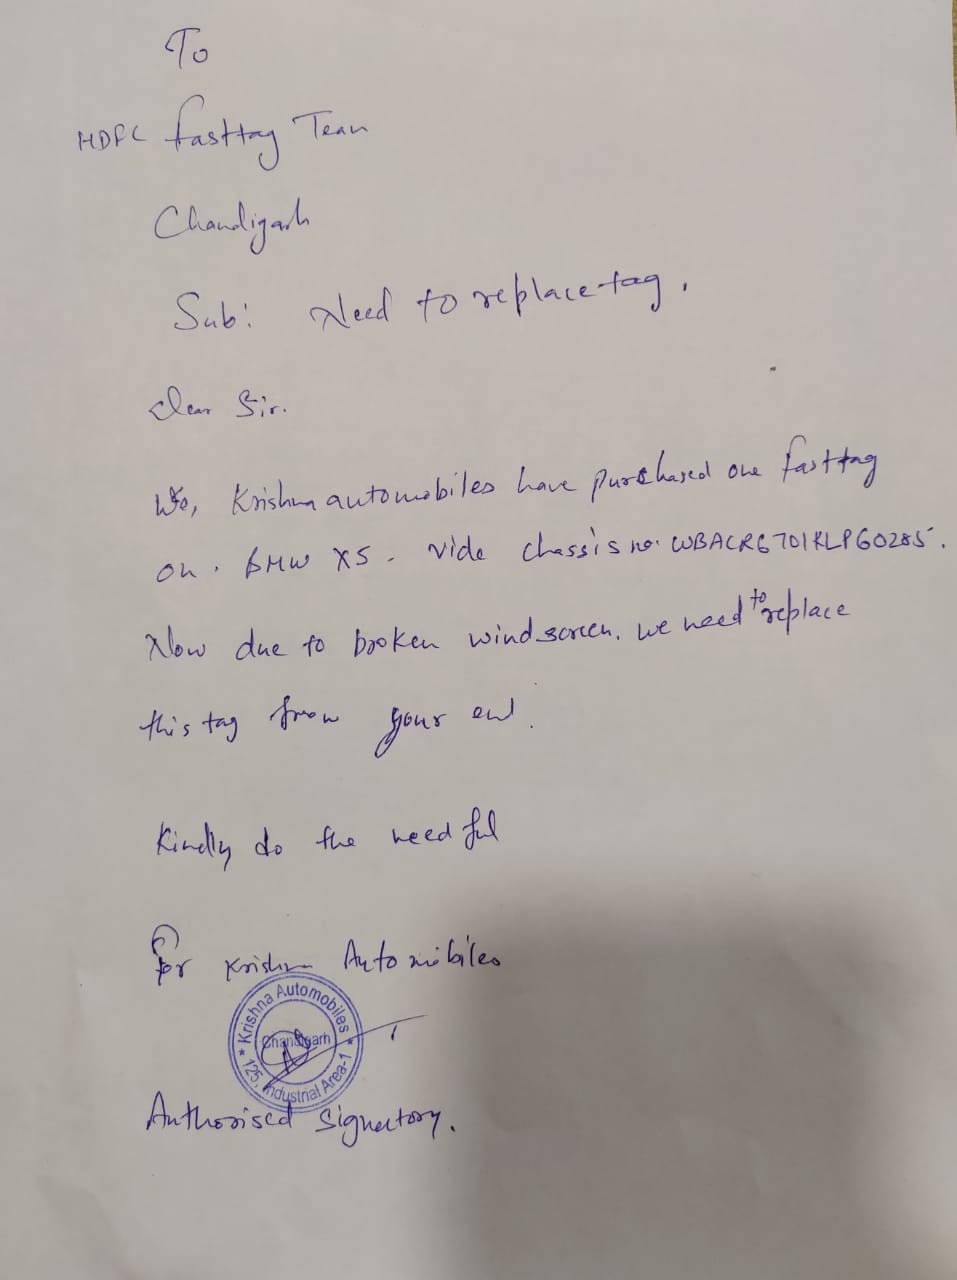 To
HDFC fasttag Team
Chandigarh
Sub: Need to replace tag.
Dear Sir.
We, Krishna automobiles have purchased one fasttag
on. BMW X5. vide chassis no. WBACR6701KLP60285.
Now due to broken windscreen. we need to replace
this tag from your end.
Kindly do the needful
For Krishna Automobiles
* Krishna Automobiles *
Chandigarh
125, Industrial Area-1
Authorised Signectory.